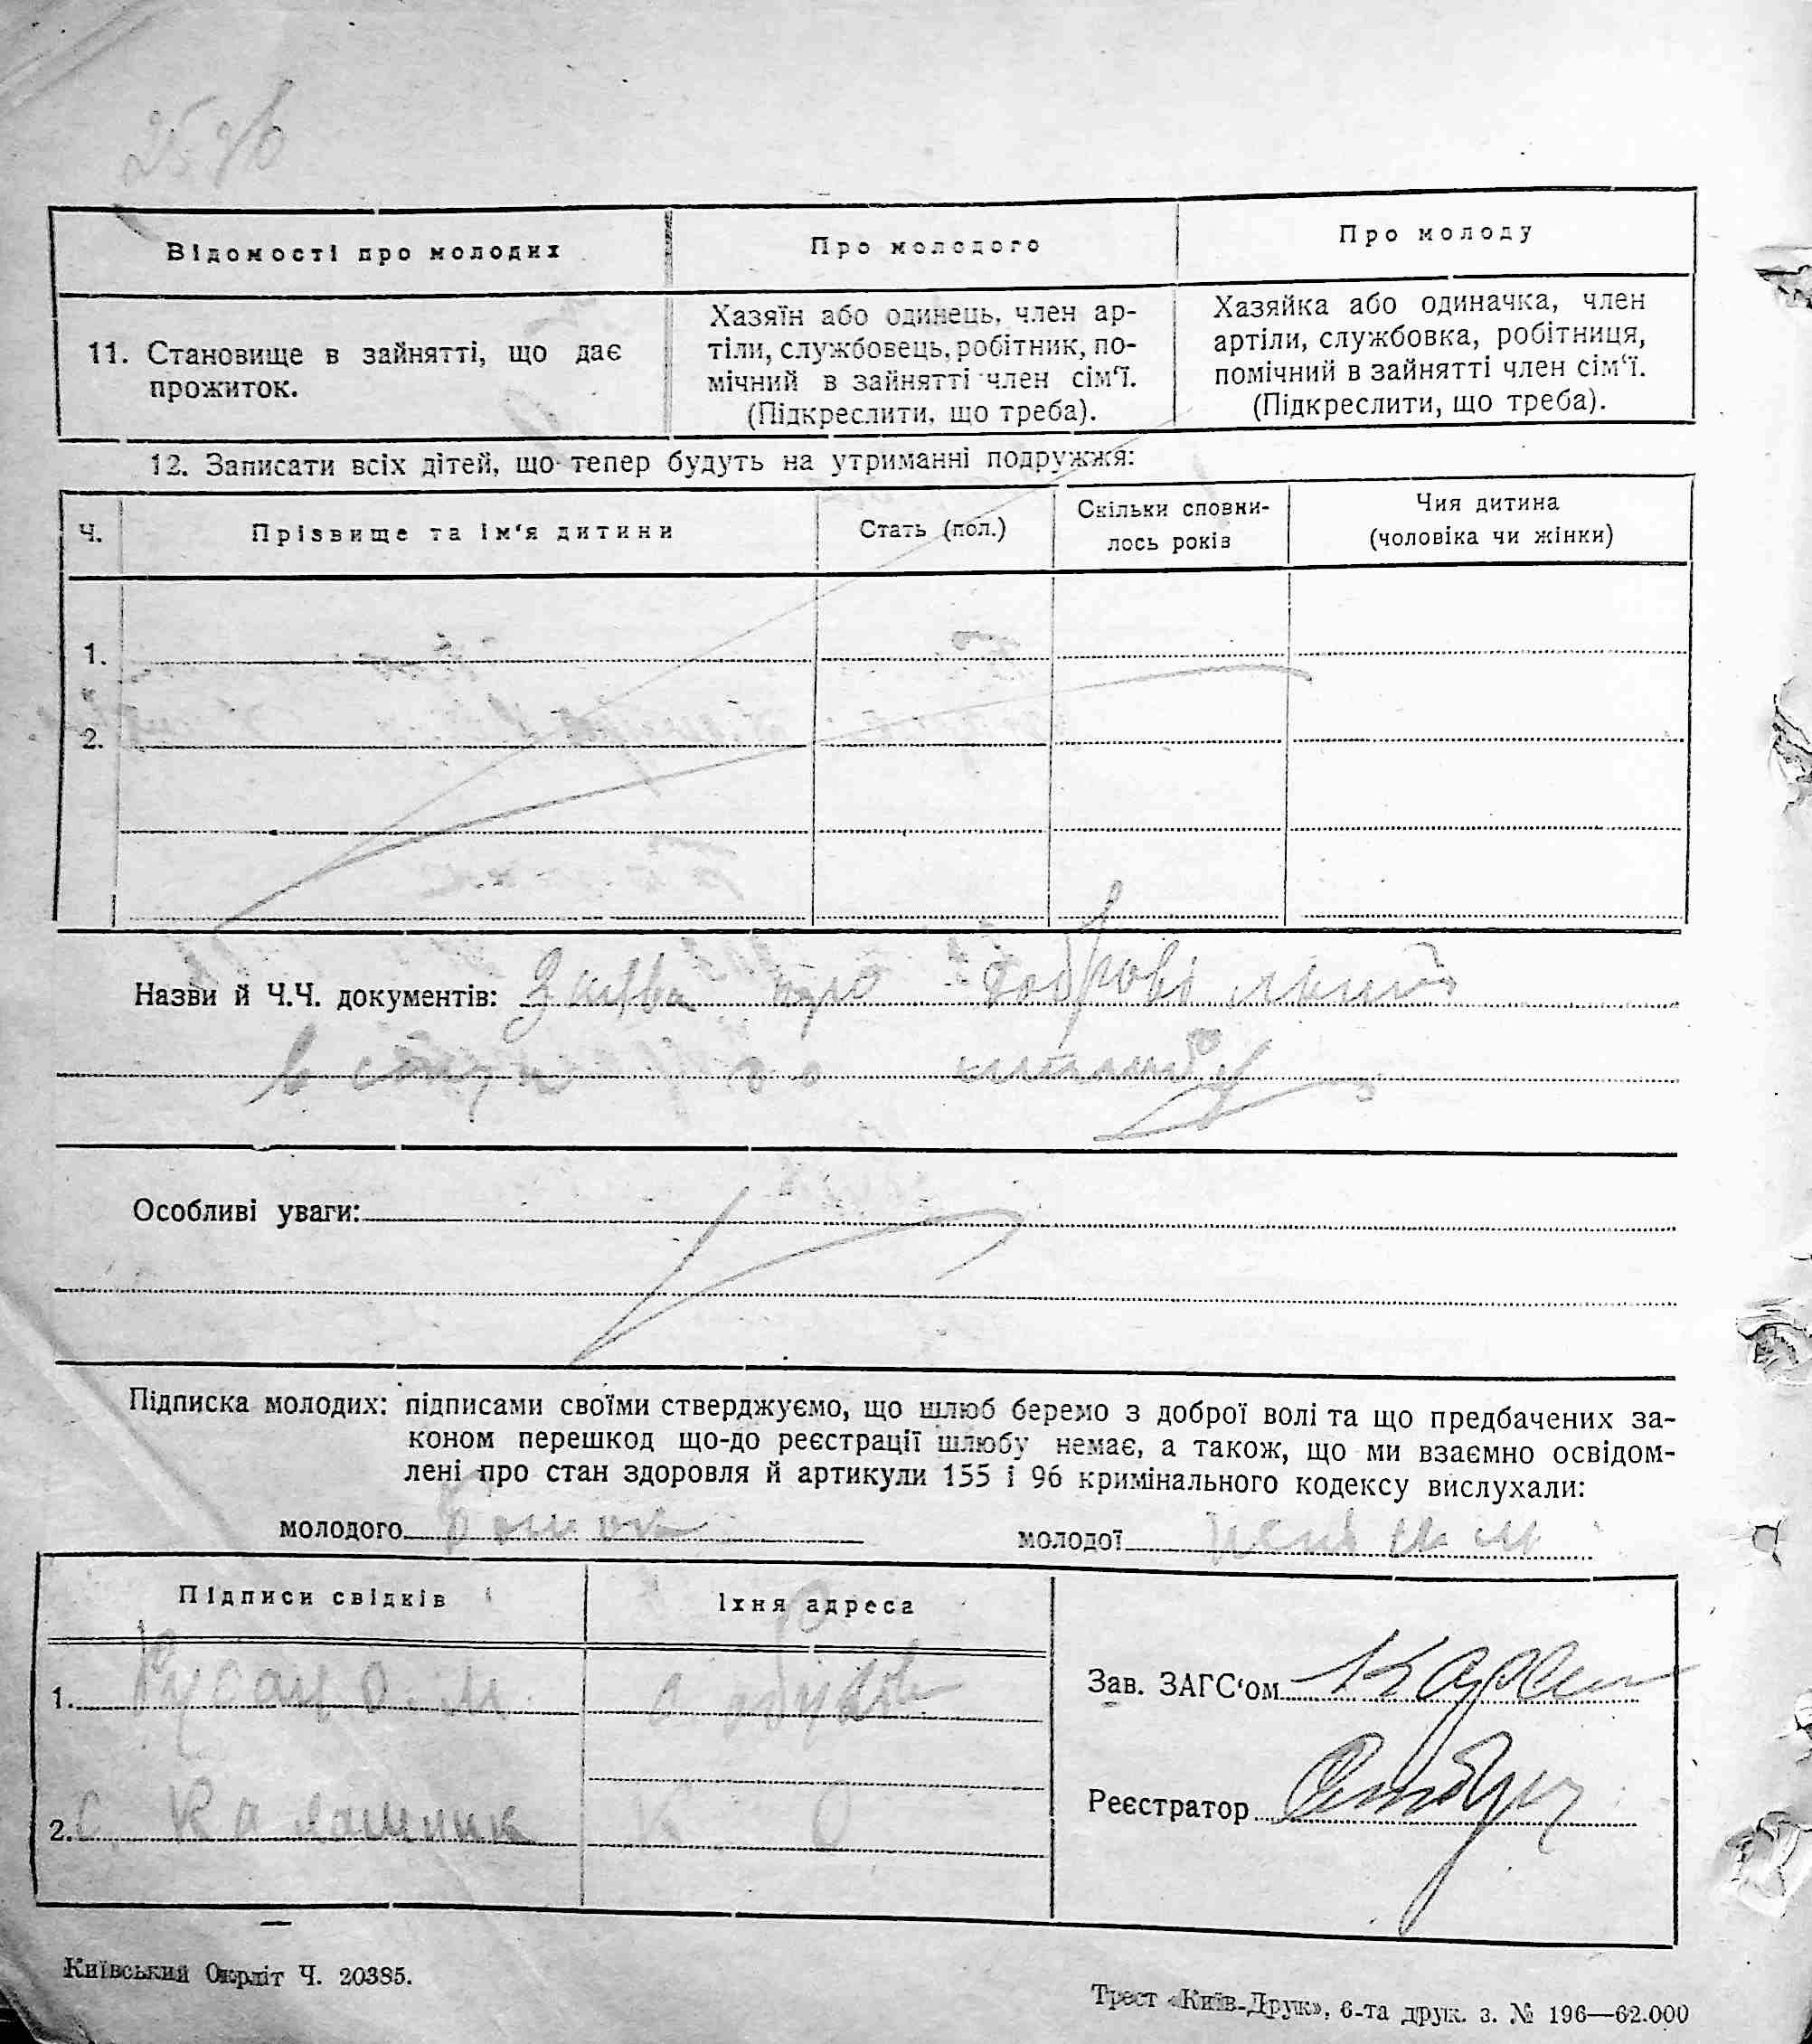 Відомості про молодих
Про молодого
Про молоду
11. Становище в зайнятті, що дає
прожиток.
Хазяїн або одинець, член ар-
тіли, службовець, робітник, по-
мічний в зайнятті член сім'ї.
(Підкреслити, що треба).
Хазяйка або одиначка, член
артіли, службовка, робітниця,
помічний в зайнятті член сім'ї.
(Підкреслити, що треба).
12. Записати всіх дітей, що тепер будуть на утриманні подружжя:
Ч.
Прізвище та ім'я дитини
Стать (пол.)
Скільки сповни-
лось років
Чия дитина
(чоловіка чи жінки)
1.
2.
Назви й Ч.Ч. документів: Заява про добровільний
вступ до шлюбу
Особливі уваги:
Підписка молодих: підписами своїми стверджуємо, що шлюб беремо з доброї волі та що предбачених за-
коном перешкод що-до реєстрації шлюбу немає, а також, що ми взаємно освідом-
лені про стан здоровля й артикули 155 і 96 кримінального кодексу вислухали:
молодого
молодої
Підписи свідків
Їхня адреса
1.
Зав. ЗАГС'ом
2. С Калашник
Реєстратор
Київський Окрліт Ч. 20385.
Трест «Київ-Друк», 6-та друк. з. № 196—62.000